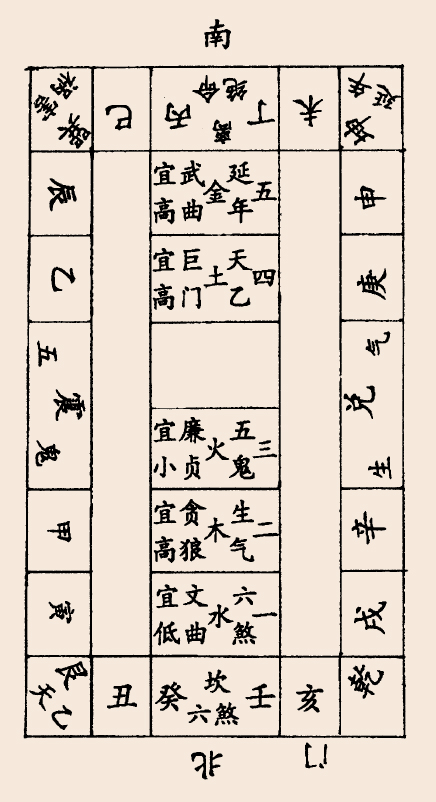 南
祸害
巽
巳
丙
绝命
离
丁
未
延年
坤
辰
五延年金武曲宜高
申
乙
四天乙土巨门宜高
庚
五鬼
震
三五鬼火廉贞宜小
生气
兑
甲
二生气木贪狼宜高
辛
寅
一六煞水文曲宜低
戌
艮
天乙
丑
癸
坎
六煞
壬
亥
乾
北
门